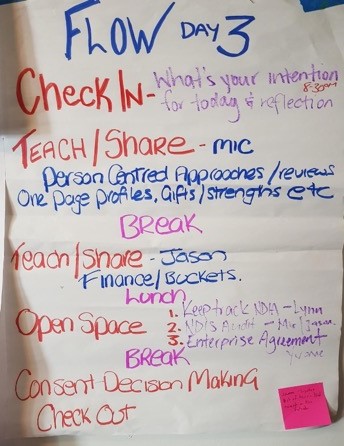 FLOW DAY 3
Check In - What's your intention 8:30am
for today & reflection
TEACH/SHARE - MIC
Person Centred Approaches/reviews
One Page Profiles, Gifts/strengths etc
BREAK
Teach/Share - Jason
Finance/Buckets.
Lunch
Open Space 1. Keeptrack NDIA - Lynn
2. NDIS Audit - Mic/Jason.
3. Enterprise Agreement
Yvonne
BREAK
Consent Decision Making
Check Out